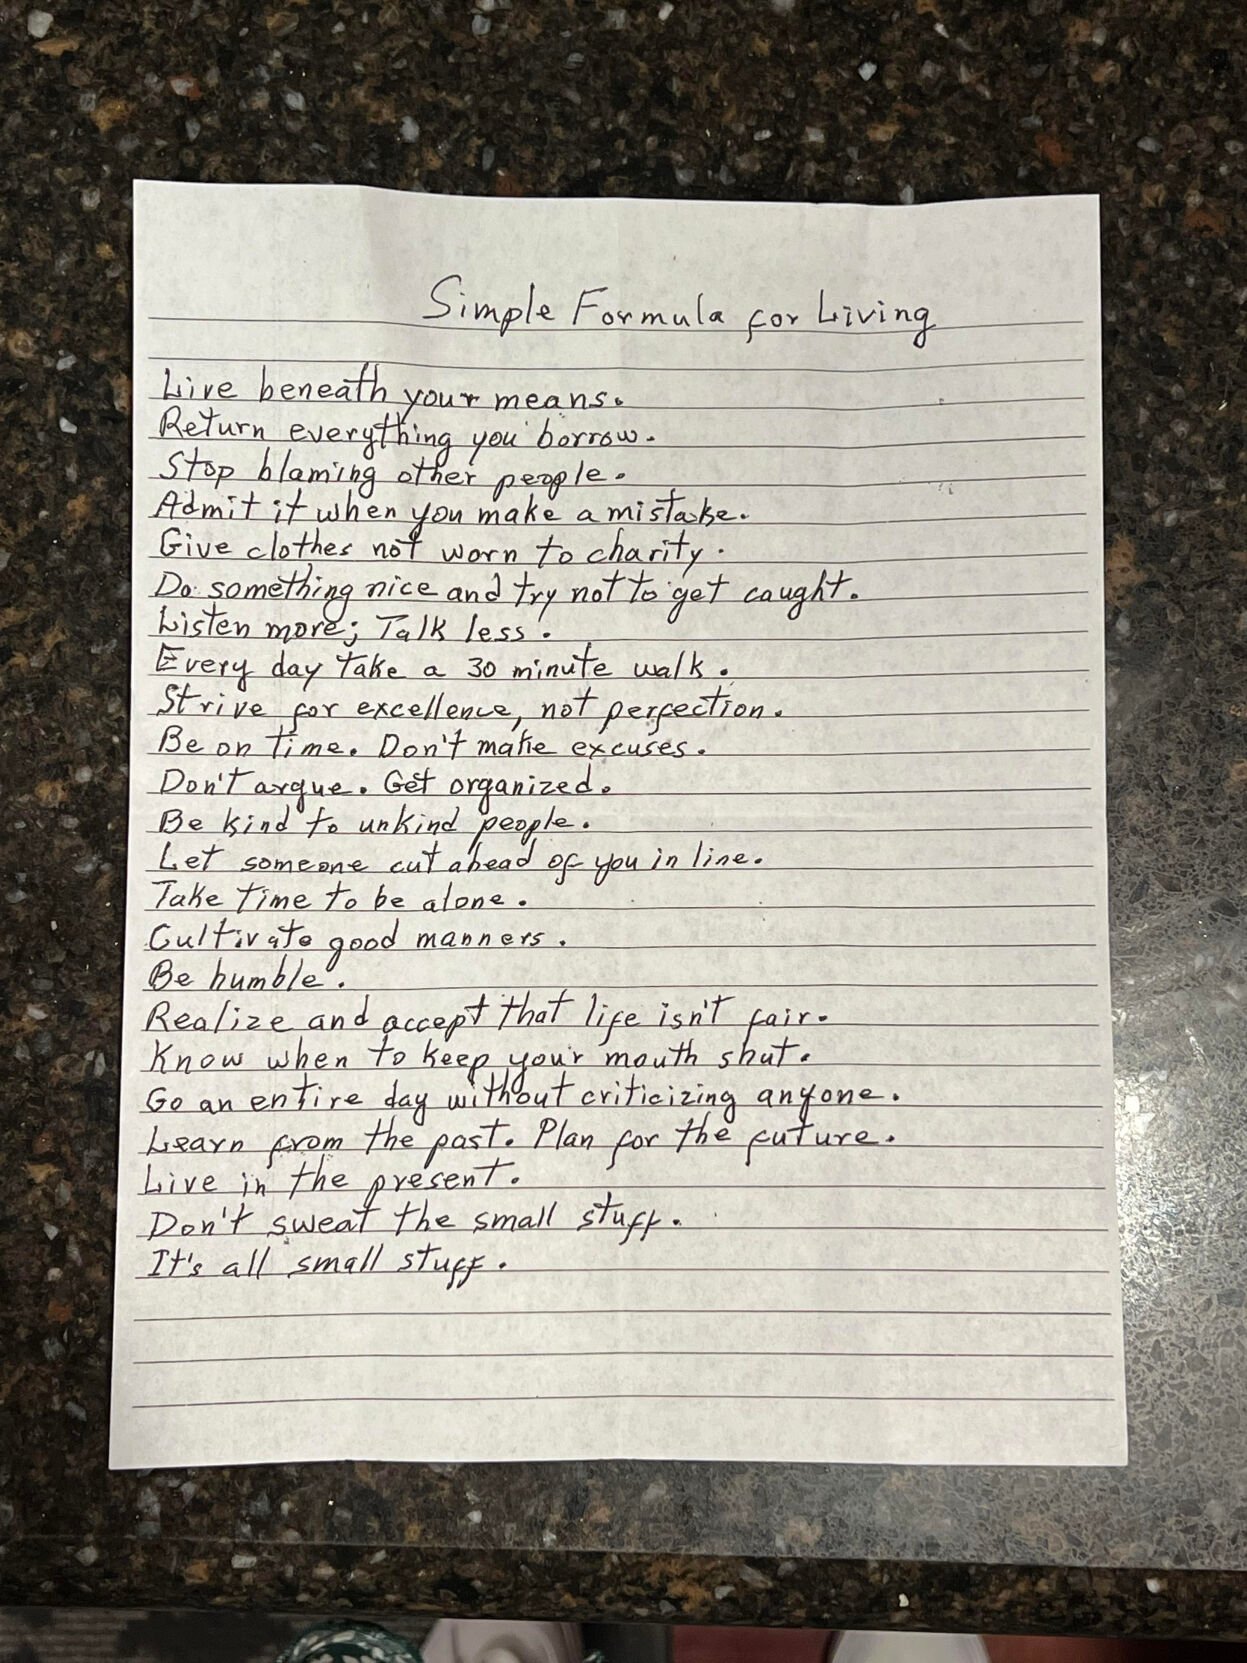 Simple Formula for Living
Live beneath your means.
Return everything you borrow.
Stop blaming other people.
Admit it when you make a mistake.
Give clothes not worn to charity.
Do something nice and try not to get caught.
Listen more; Talk less.
Every day take a 30 minute walk.
Strive for excellence, not perfection.
Be on time. Don't make excuses.
Don't argue. Get organized.
Be kind to unkind people.
Let someone cut ahead of you in line.
Take time to be alone.
Cultivate good manners.
Be humble.
Realize and accept that life isn't fair.
Know when to keep your mouth shut.
Go an entire day without criticizing anyone.
Learn from the past. Plan for the future.
Live in the present.
Don't sweat the small stuff.
It's all small stuff.